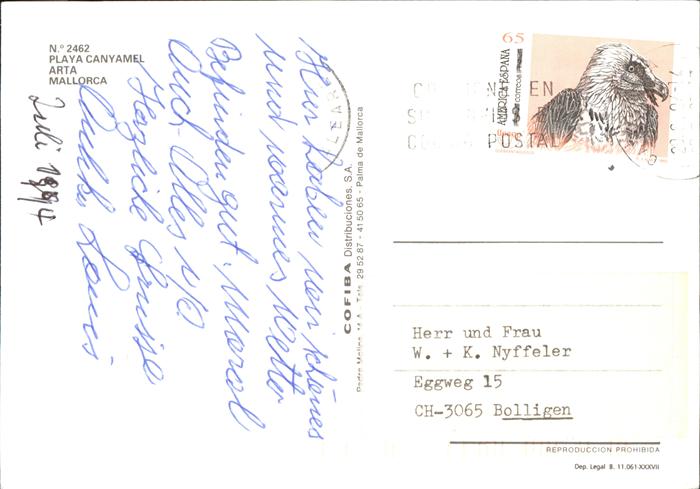 N.º 2462
PLAYA CANYAMEL
ARTA
MALLORCA
Juli 1994
Hier haben wir schönes
und warmes Wetter
Befinden gut. Marcel
Auch. Alles i/O
Herzliche Grüsse
Louis
COFIBA Distribuciones, S.A.
29 52 87 - 41 50 65 - Palma de Mallorca
65
AMERICA ESPAÑA
correos
EN
POSTAL
Herr und Frau
W. + K. Nyffeler
Eggweg 15
CH-3065 Bolligen
REPRODUCCION PROHIBIDA
Dep. Legal B. 11.061-XXXVII